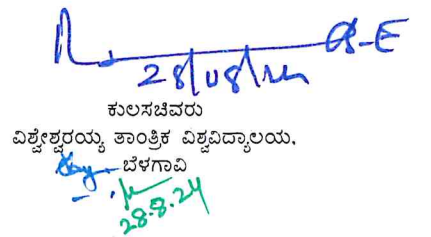 28/08/24
ಕುಲಸಚಿವರು
ವಿಶ್ವೇಶ್ವರಯ್ಯ ತಾಂತ್ರಿಕ ವಿಶ್ವವಿದ್ಯಾಲಯ,
ಬೆಳಗಾವಿ
28.8.24